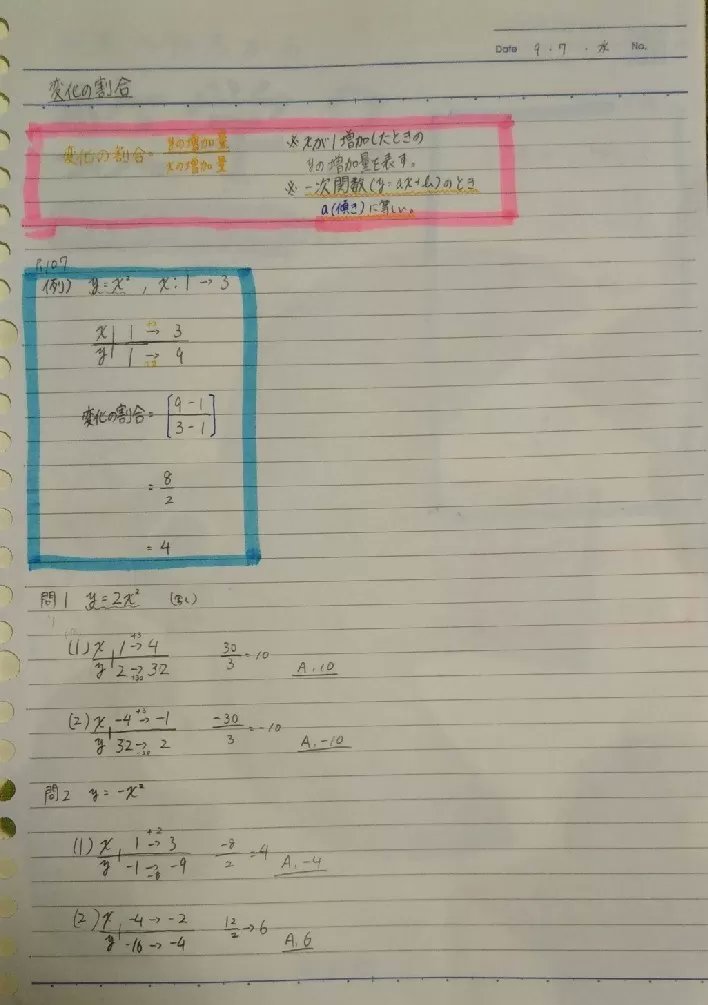 Date 9・7・水 No.
変化の割合
変化の割合= yの増加量/xの増加量
※xが1増加したときの
yの増加量を表す。
※一次関数(y=ax+b)のとき
a(傾き)に等しい。
P.107
例) y=x², x:1→3
x 1 → 3
y 1 → 9
変化の割合=[9-1/3-1]
=8/2
=4
問1 y=2x²
(1) x 1 → 4 +3
y 2 → 32 +30
30/3=10
A. 10
(2) x -4 → -1 +3
y 32 → 2
-30/3=-10
A. -10
問2 y=-x²
(1) x 1 → 3 +2
y -1 → -9 -8
-8/2=4
A. -4
(2) x -4 → -2
y -16 → -4
12/2→6
A. 6